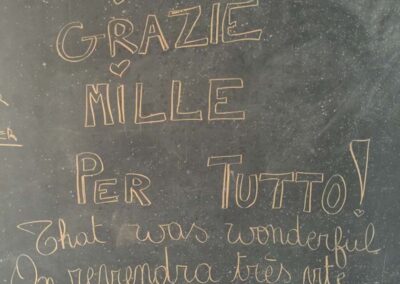 GRAZIE
MILLE
PER TUTTO!
That was wonderful
On reviendra très vite